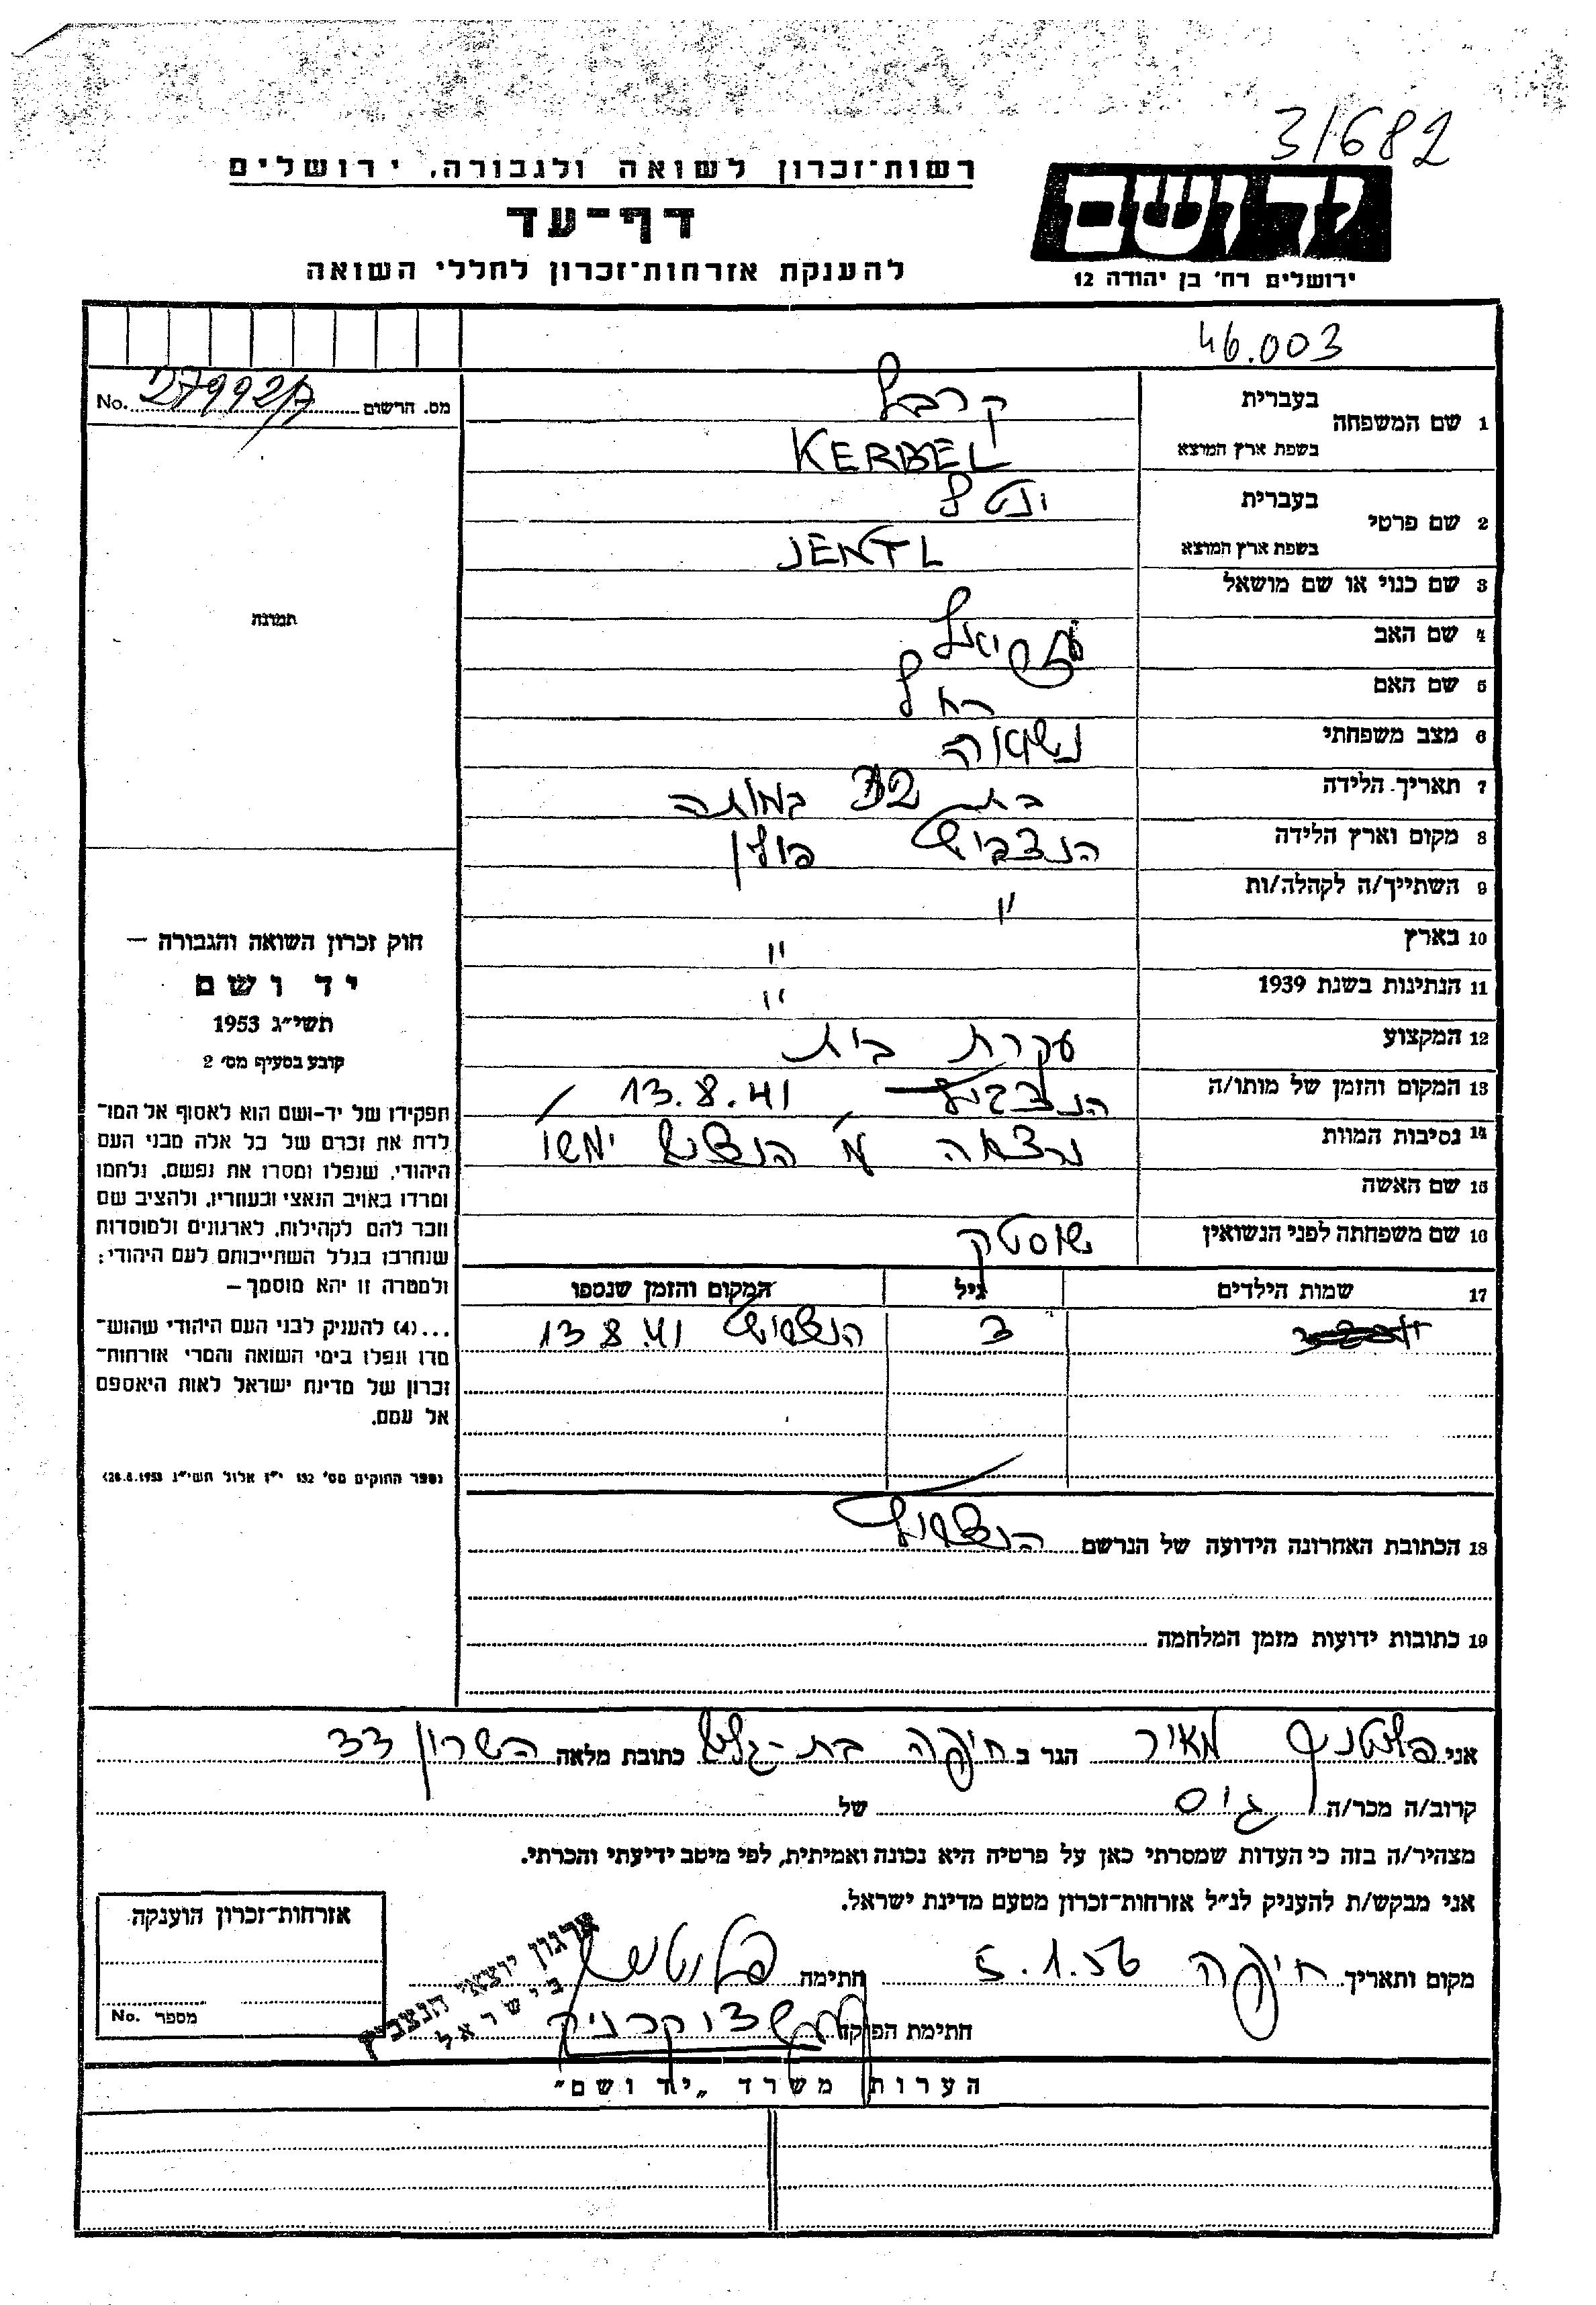 31682
רשות־זכרון לשואה ולגבורה, ירושלים
יד ושם
דף־עד
להענקת אזרחות־זכרון לחללי השואה
ירושלים רח' בן יהודה 12
46.003
מס. הרשום No. 27992/7
1 שם המשפחה בעברית קרבל
בשפת ארץ המוצא KERBEL
2 שם פרטי בעברית ינטל
בשפת ארץ המוצא JENTL
3 שם כנוי או שם מושאל
4 שם האב
5 שם האם רחל
6 מצב משפחתי נשואה
7 תאריך הלידה בת 32 במותה
8 מקום וארץ הלידה הנצביץ פולין
9 השתייך/ה לקהלה/ות "
10 בארץ "
11 הנתינות בשנת 1939 "
12 המקצוע עקרת בית
13 המקום והזמן של מותו/ה הנצביץ 13.8.41
14 נסיבות המוות נרצחה ע"י הנאצים ימ"ש
15 שם האשה
16 שם משפחתה לפני הנשואין שוסטק
17 שמות הילדים גיל המקום והזמן שנספו
3 הנצביץ 13.8.41
18 הכתובת האחרונה הידועה של הנרשם הנצביץ
19 כתובות ידועות מזמן המלחמה
תמונה
חוק זכרון השואה והגבורה —
יד ושם
תשי"ג 1953
קובע בסעיף מס' 2
תפקידו של יד־ושם הוא לאסוף אל המו־
לדת את זכרם של כל אלה מבני העם
היהודי, שנפלו ומסרו את נפשם, נלחמו
ומרדו באויב הנאצי ובעוזריו, ולהציב שם
וזכר להם לקהילות, לארגונים ולמוסדות
שנחרבו בגלל השתייכותם לעם היהודי;
ולמטרה זו יהא מוסמך —
...(4) להעניק לבני העם היהודי שהוש־
מדו ונפלו בימי השואה והמרי אזרחות־
זכרון של מדינת ישראל לאות היאספם
אל עמם.
(ספר החוקים מס' 132 י"ז אלול תשי"ג 28.8.1953)
אני מאיר הגר ב חיפה בת-גלים כתובת מלאה השרון 33
קרוב/ה מכר/ה גיס של
מצהיר/ה בזה כי העדות שמסרתי כאן על פרטיה היא נכונה ואמיתית, לפי מיטב ידיעתי והכרתי.
אני מבקש/ת להעניק לנ"ל אזרחות־זכרון מטעם מדינת ישראל.
מקום ותאריך חיפה 5.1.56 חתימה
חתימת הפוקד
ארגון יוצאי הנצביץ
בישראל
אזרחות־זכרון הוענקה
מספר No.
הערות משרד „יד ושם"